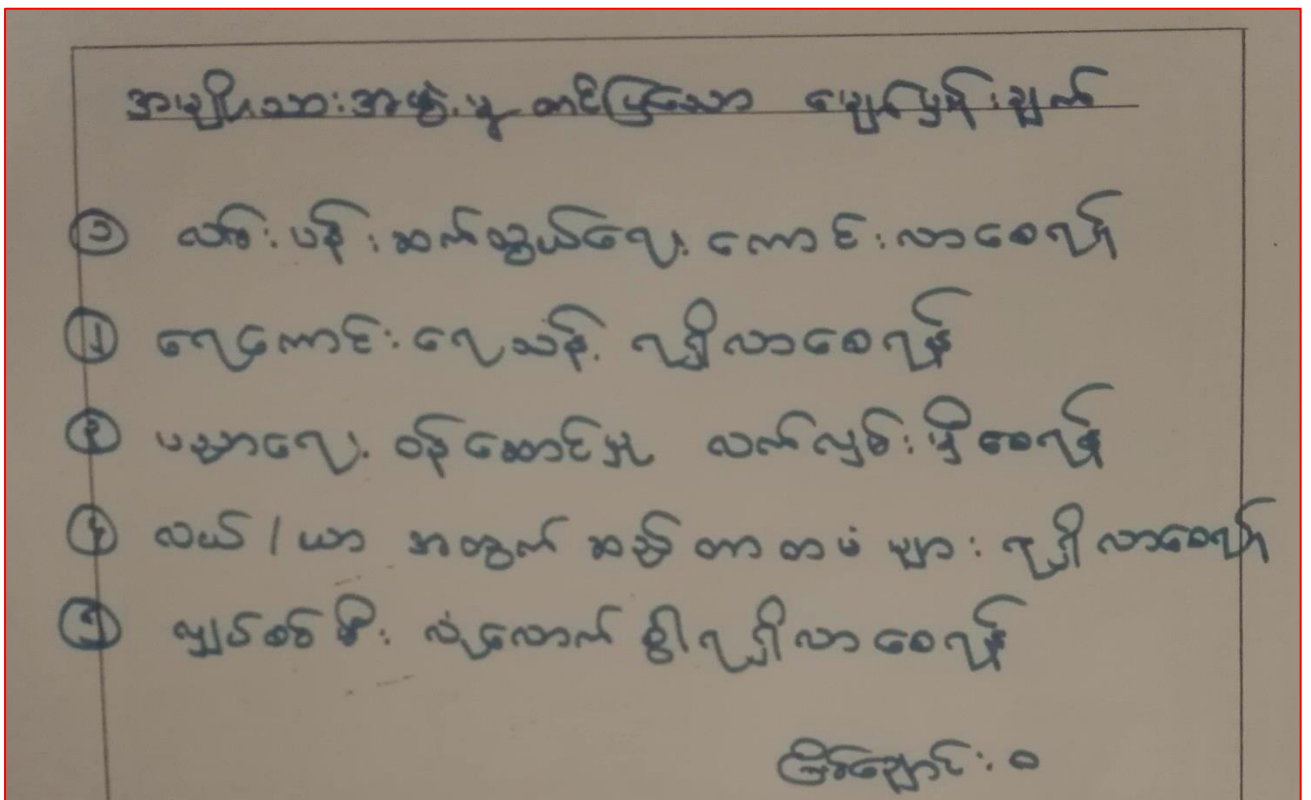 အမျိုးသားအဖွဲ့မှ တင်ပြသော မျှော်မှန်းချက်
၁ လမ်းပန်းဆက်သွယ်ရေး ကောင်းလာစေရန်
၂ ရေကောင်းရေသန့် ရရှိလာစေရန်
၃ ပညာရေး ဝန်ဆောင်မှု လက်လှမ်းမှီစေရန်
၄ လယ်/ယာ အတွက် ဆည်တာတမံ များ ရရှိလာစေရန်
၅ လျှပ်စစ်မီး လုံလောက်စွာ ရရှိလာစေရန်
မြစ်ချောင်း